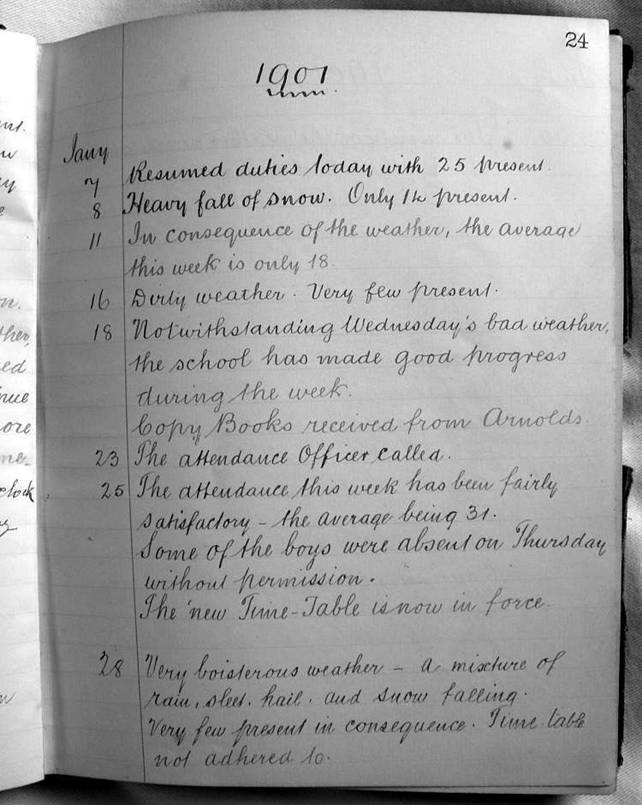 24
1901
Jany
7 Resumed duties today with 25 present.
8 Heavy fall of snow. Only 14 present.
11 In consequence of the weather, the average
this week is only 18.
16 Dirty weather. Very few present.
18 Notwithstanding Wednesday's bad weather,
the school has made good progress
during the week.
Copy Books received from Arnolds.
23 The attendance Officer called.
25 The attendance this week has been fairly
satisfactory - the average being 31.
Some of the boys were absent on Thursday
without permission.
The new Time-Table is now in force.
28 Very boisterous weather - a mixture of
rain, sleet, hail, and snow falling.
Very few present in consequence. Time-table
not adhered to.